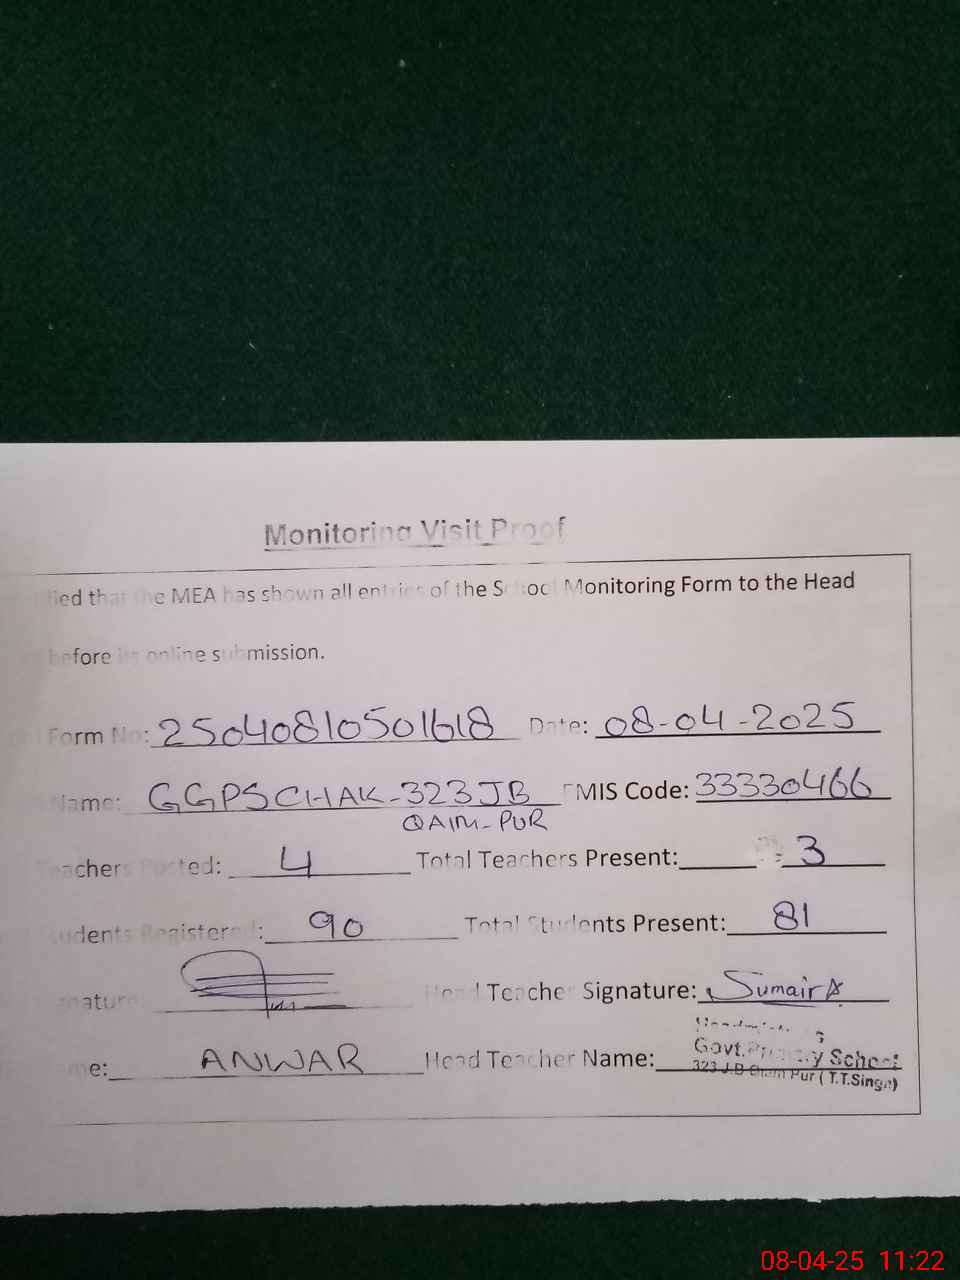 Monitoring Visit Proof
that the MEA has shown all entries of the School Monitoring Form to the Head
before its online submission.
Form No: 25040810501618 Date: 08-04-2025
Name: GGPS CHAK-323 JB EMIS Code: 33330466
QAIM-PUR
Teachers Posted: 4 Total Teachers Present: 3
Students Registered: 90 Total Students Present: 81
Head Teacher Signature: Sumaira
ANWAR Head Teacher Name:
Govt. Primary School
323 J.B Pur (T.T.Singh)
08-04-25 11:22